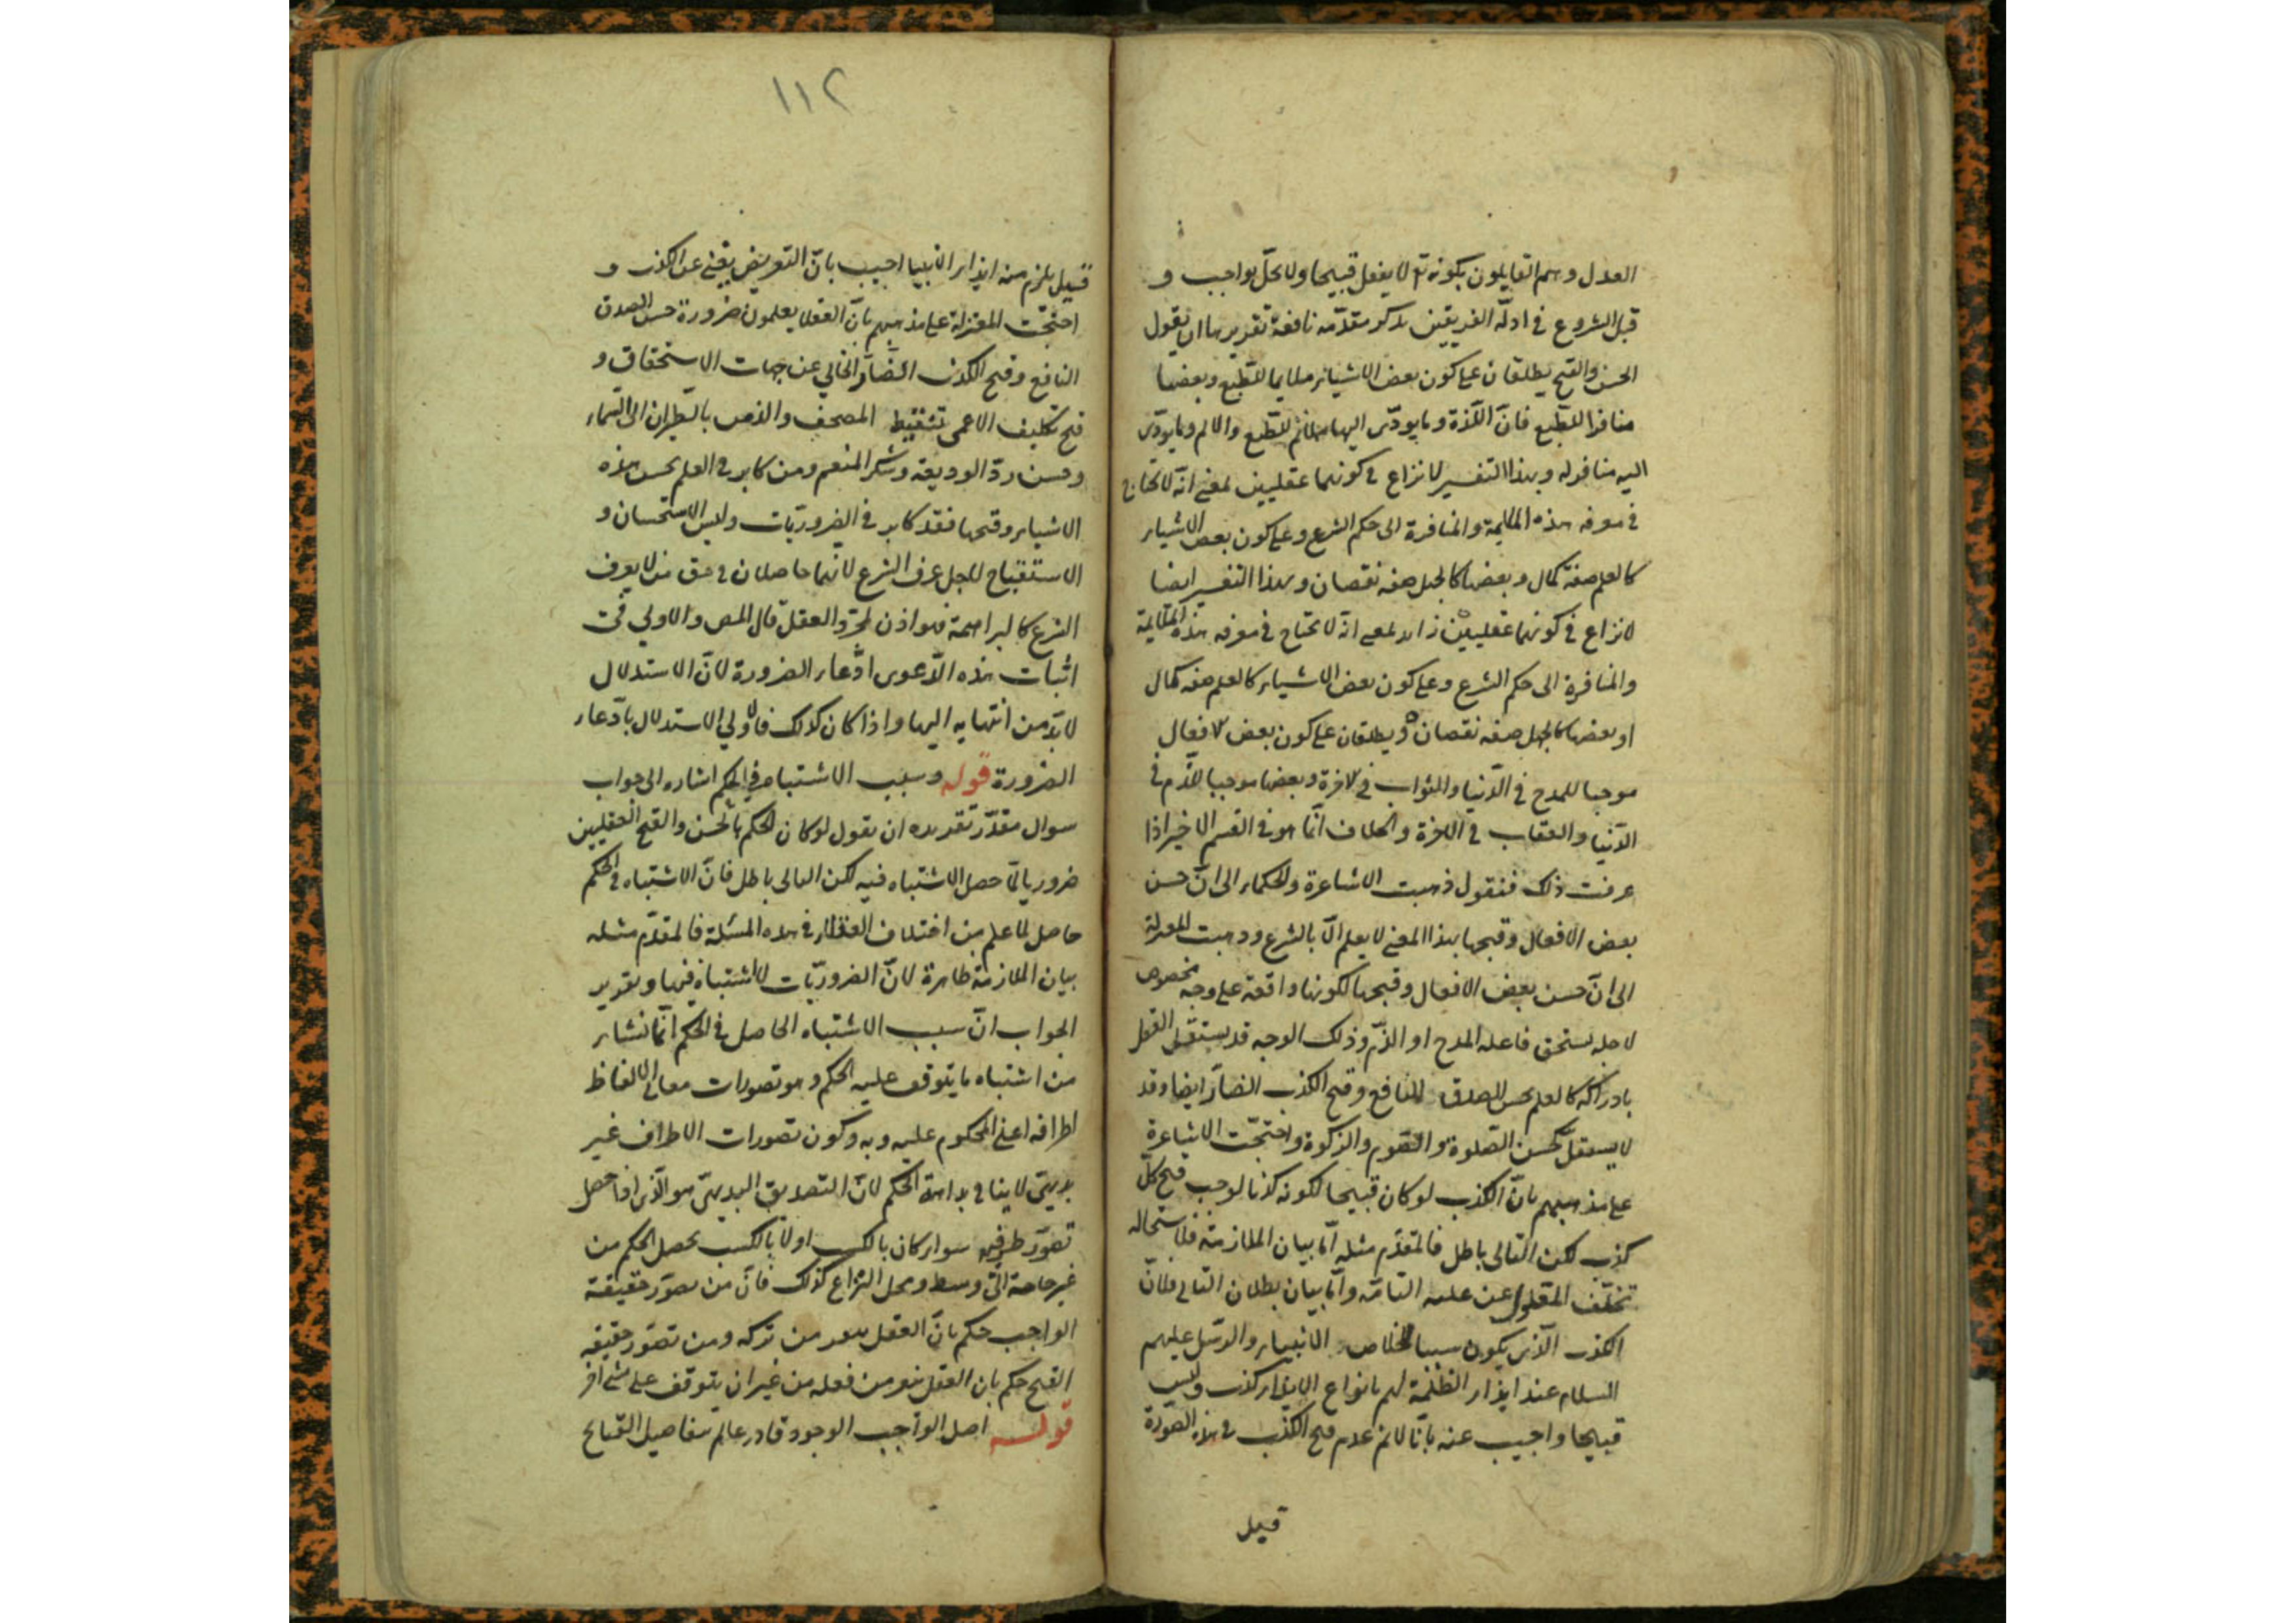 العدل وهم القايلون بكونه تع لا يفعل قبيحا ولا يخل بواجب و
قبل الشروع في ادلة الفريقين نذكر مقدمة نافعة تقريرها ان يقول
الحسن والقبح يطلقان على كون بعض الاشياء ملايما للطبع وبعضها
منافرا للطبع فان اللذة وما يودى اليها ملائم للطبع والالم وما يودى
اليه منافر له وبهذا التفسير لا نزاع في كونهما عقليين لمعنى انه لا يحتاج
في معرفه هذه الملايمة والمنافرة الى حكم الشرع وعلى كون بعض الاشياء
كالعلم صفة كمال وبعضها كالجهل صفه نقصان وبهذا التفسير ايضا
لا نزاع في كونهما عقليين زايد لمعنى انه لا يحتاج في معرفه هذه الملايمة
والمنافرة الى حكم الشرع وعلى كون بعض الاشياء كالعلم صفه كمال
او بعضها كالجهل صفه نقصان ويطلقان على كون بعض لافعال
موجبا للمدح في الدنيا والثواب في لاخرة وبعضها موجبا للذم في
الدنيا والعقاب في الاخرة والخلاف انما هو في القسم الاخير اذا
عرفت ذلك فنقول ذهبت الاشاعرة والحكماء الى ان حسن
بعض الافعال وقبحها بهذا المعنى لا يعلم الا بالشرع وذهبت المعتزلة
الى ان حسن بعض الافعال وقبحها لكونها واقعة على وجه مخصوص
لاجله يستحق فاعله المدح او الذم وذلك الوجه قد يستقل العقل
بادراكه كالعلم بحسن الصدق النافع وقبح الكذب الضار ايضا وقد
لا يستقل كحسن الصلوة والصوم والزكوة واحتجت الاشاعرة
على مذهبهم بان الكذب لو كان قبيحا لكونه كذبا لوجب قبح كل
كذب لكن التالى باطل فالمقدم مثله اما بيان الملازمة فلاستحاله
تخلف المعلول عن علته التامة واما بيان بطلان التالى فلان
الكذب الذى يكون سببا لخلاص الانبياء والرسل عليهم
السلام عند ايذاء الظلمة لهم بانواع الايذاء كذب وليس
قبيحا واجيب عنه بانا لا نم عدم قبح الكذب في هذه الصورة
قيل
١١٢
قيل يلزم منه ايذاء الانبيا اجيب بان التعريض يغنى عن الكذب و
احتجت المعتزلة على مذهبهم بان العقلا يعلمون ضرورة حسن الصدق
النافع وقبح الكذب الضار الخالي عن جهات الاستحقاق و
قبح تكليف الاعمى تنقيط المصحف والزمن بالطيران الى السماء
وحسن رد الوديعة وشكر المنعم ومن كابر في العلم بحسن هذه
الاشياء وقبحها فقد كابر في الضروريات وليس الاستحسان و
الاستقباح لاجل عرف الشرع لانهما حاصلان في حق من لا يعرف
الشرع كالبراهمة فهو اذن لمجرد العقل قال المص والاولي في
اثبات هذه الدعوى ادعاء الضرورة لان الاستدلال
لا بد من انتهايه اليها واذا كان كذلك فالاولي الاستدلال بادعاء
الضرورة قوله وسبب الاشتباه في الحكم اشاره الى جواب
سوال مقدر تقريره ان يقول لو كان الحكم بالحسن والقبح العقليين
ضروريا لما حصل الاشتباه فيه لكن التالى باطل فان الاشتباه في الحكم
حاصل لما علم من اختلاف العقلاء في هذه المسئلة فالمقدم مثله
بيان الملازمة ظاهرة لان الضروريات لا اشتباه فيها وتقرير
الجواب ان سبب الاشتباه الحاصل في الحكم انما نشاء
من اشتباه ما يتوقف عليه الحكم وهو تصورات معاني الالفاظ
اطرافه اعنى المحكوم عليه وبه وكون تصورات الاطراف غير
بديهى لا ينافي بداهة الحكم لان التصديق البديهى هو الذى اذا حصل
تصور طرفيه سواء كان بالكسب اولا بالكسب يحصل الحكم من
غير حاجة الى وسط ومحل النزاع كذلك فان من تصور حقيقة
الواجب حكم بان العقل ينفر من تركه ومن تصور حقيقه
القبح حكم بان العقل ينفر من فعله من غير ان يتوقف على شئ اخر
قوله اصل الواجب الوجود قادر عالم بتفاصيل القبايح